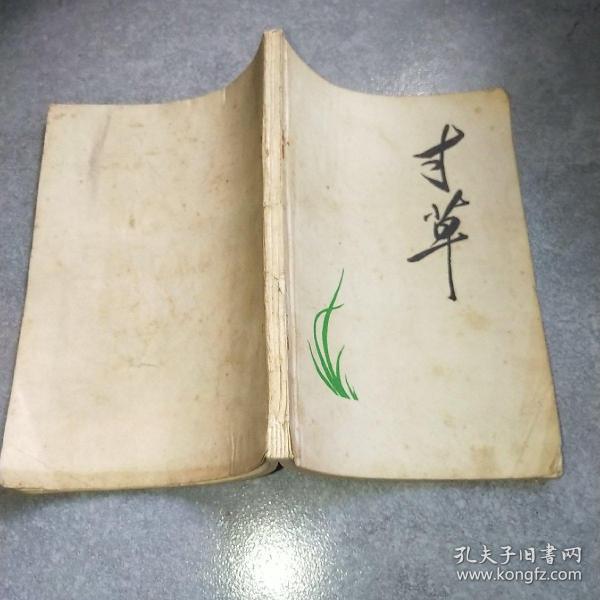 寸草
孔夫子旧書网
www.kongfz.com